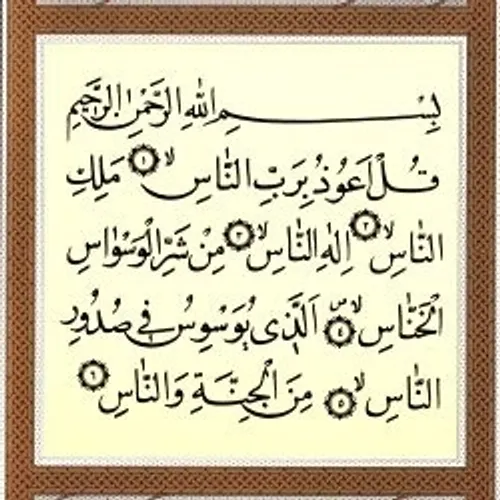 بِسْمِ اللّٰهِ الرَّحْمٰنِ الرَّحِيمِ
قُلْ اَعُوذُ بِرَبِّ النَّاسِۙ ﴿١﴾ مَلِكِ
النَّاسِۙ ﴿٢﴾ اِلٰهِ النَّاسِۙ ﴿٣﴾ مِنْ شَرِّ الْوَسْوَاسِ
الْخَنَّاسِۙ ﴿٤﴾ اَلَّذِى يُوَسْوِسُ فِى صُدُورِ
النَّاسِۙ ﴿٥﴾ مِنَ الْجِنَّةِ وَالنَّاسِ ﴿٦﴾